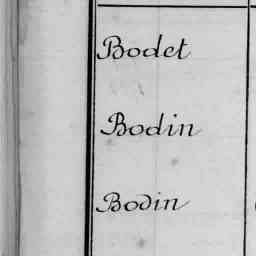 Bodet
Bodin
Bodin